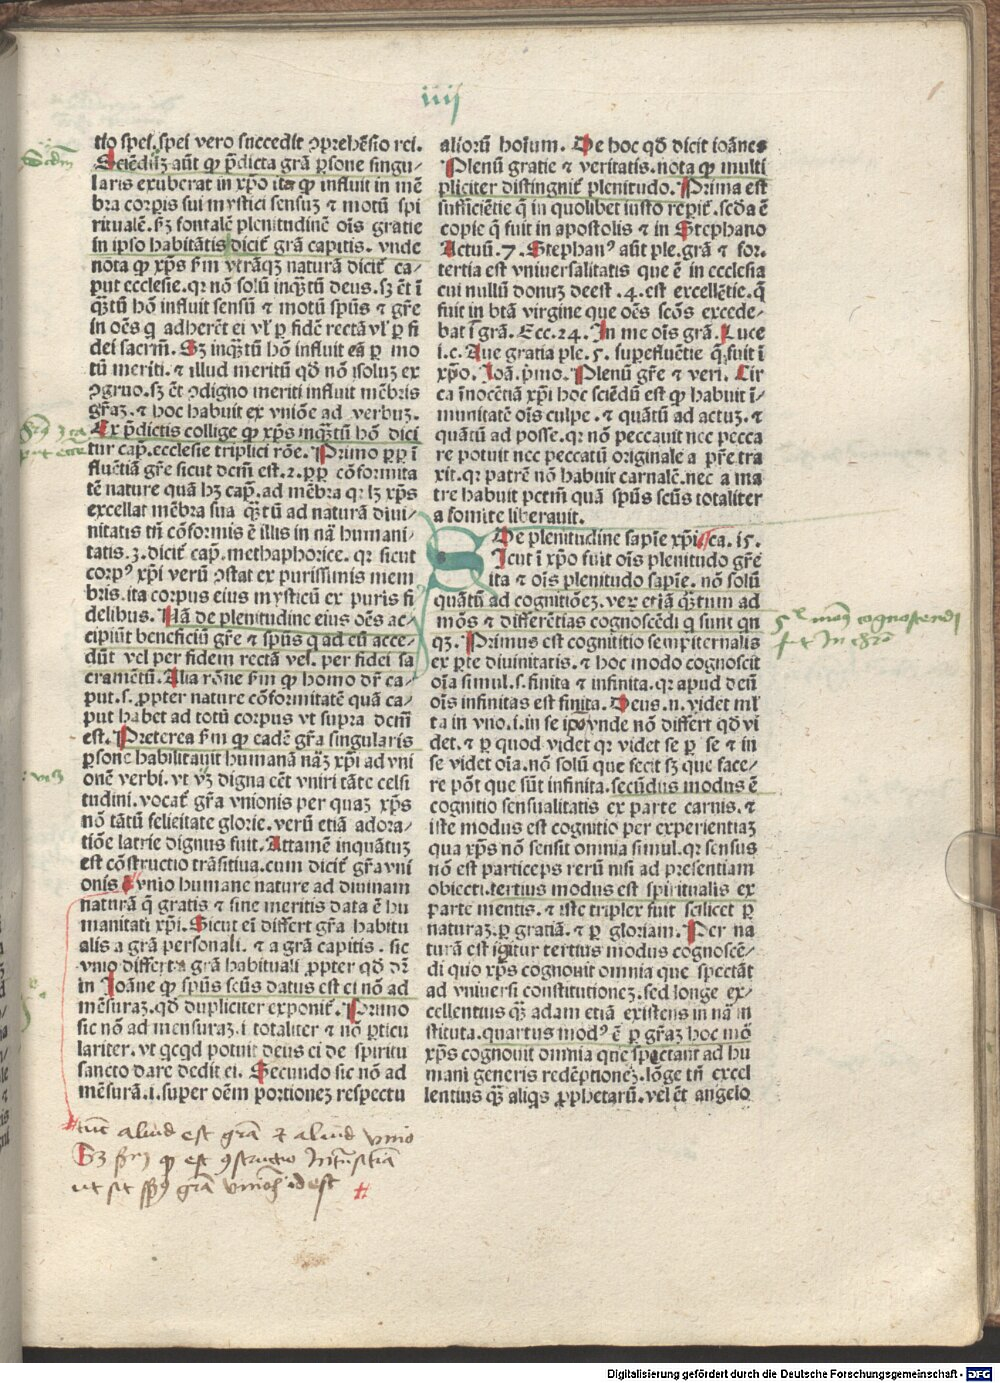 iiij
tio spei. spei vero succedit ꝯprehēsio rei.
Sciēdūꝫ aūt ꝙ p̄dicta grā ꝑsone singu⸗
laris exuberat in xp̄o ita ꝙ influit in mē
bra corꝑis sui mystici sensuꝫ ⁊ motū spi
ritualē. sꝫ fontalē plenitudinē oīs gratie
in ipso habitātis dicit᷑ grā capitis. vnde
nota ꝙ xp̄s ẜm vtrāqꝫ naturā dicit᷑ ca⸗
put ecclesie. qꝛ nō solū inqꝫtū deus. sꝫ ēt ī
qꝫtū hō influit sensū ⁊ motū spūs ⁊ gr̄e
in oēs q̄ adherēt ei vl̓ ꝑ fidē rectā vl̓ ꝑ fi
dei sacrm̄. Sꝫ inqꝫtū hō influit eā ꝑ mo
tū meriti. ⁊ illud meritū qd̓ nō ısoluꝫ ex
ꝯgruo. sꝫ ēt ꝯdigno meriti influit mēbris
gr̄aꝫ. ⁊ hoc habuit ex vniōe ad verbuꝫ.
Ex p̄dictis collige ꝙ xp̄s inqꝫtū hō dici
tur cap̄. ecclesie triplici rōe. Primo ꝓp̄ ī
fluētiā gr̄e sicut dcm̄ est. 2. ꝓp̄ cōformita
tē nature quā hꝫ cap̄. ad mēbra qꝛ lꝫ xp̄s
excellat mēbra sua qꝫtū ad naturā diui⸗
nitatis tn̄ cōformis ē illis in nā humani⸗
tatis. 3. dicit᷑ cap̄. methaphorice. qꝛ sicut
corpꝰ xp̄i verū ꝯstat ex purissimis mem
bris. ita corpus eius mysticū ex puris fi
delibus. Nā de plenitudine eius oēs ac⸗
cipiūt beneficiū gr̄e ⁊ spūs q̄ ad eū acce⸗
dūt vel per fidem rectā vel. per fidei sa
cramētū. Alia rōne ẜm ꝙ homo dr̄ ca⸗
put. s. ꝓpter nature cōformitatē quā ca⸗
put habet ad totū corpus vt supra dcm̄
est. Preterea ẜm ꝙ eadē gr̄a singularis
ꝑsone habilitauit humanā nāꝫ xp̄i ad vni
onē verbi. vt vꝫ digna cēt vniri tāte celsi
tudini. vocat᷑ gr̄a vnionis per quaꝫ xp̄s
nō tātū felicitate glorie. verū etiā adora⸗
tiōe latrie dignus fuit. Attamē inquātuꝫ
est cōstructio trāsitiua. cum dicit᷑ gr̄a vni
onis vnio humane nature ad diuinam
naturā q̄ gratis ⁊ sine meritis data ē hu
manitati xp̄i. Sicut ei differt gr̄a habitu
alis a grā personali. ⁊ a grā capitis. sic
vnio differt a grā habituali ꝓpter qd̓ dr̄
in Joāne ꝙ spūs scūs datus est ei nō ad
mēsuraꝫ. qd̓ dupliciter exponit᷑. Primo
sic nō ad mensuraꝫ. i totaliter ⁊ nō ꝑticu
lariter. vt qcqd potuit deus ei de spiritu
sancto dare dedit ei. Secundo sic nō ad
mēsurā. i. super oēm portionez respectu
aliorū hoīum. De hoc qd̓ dicit ioānes
Plenū gratie ⁊ veritatis. nota ꝙ multi
pliciter distinguit᷑ plenitudo. Prima est
sufficiētie q̄ in quolibet iusto reꝑit᷑. scd̓a ē
copie q̄ fuit in apostolis ⁊ in Stephano
Actuū. 7. Stephanꝰ aūt ple. grā ⁊ for.
tertia est vniuersalitatis que ē in ecclesia
cui nullū donuꝫ deest. 4. est excellētie. q̄
fuit in btā virgine que oēs scōs excede⸗
bat ī grā. Ecc. 24. In me oīs grā. Luce
i.c. Aue gratia ple. 5. suꝑefluētie q̄ fuit ī
xp̄o. Joā. p̄mo. Plenū gr̄e ⁊ veri. Cir
ca īnocētiā xp̄i hoc sciēdū est ꝙ habuit ī⸗
munitatē oīs culpe. ⁊ quātū ad actuꝫ. ⁊
quātū ad posse. qꝛ nō peccauit nec pecca
re potuit nec peccatū originale a pr̄e tra
xit. qꝛ patrē nō habuit carnalē. nec a ma
tre habuit pctm̄ quā spūs scūs totaliter
a fomite liberauit.
De plenitudine sapīe xp̄i ca. 15.
Sicut ī xp̄o fuit oīs plenitudo gr̄e
ita ⁊ oīs plenitudo sapīe. nō solū
quātū ad cognitiōeꝫ. veꝝ etiā qꝫtum ad
mōs ⁊ differētias cognoscēdi q̄ sunt qn
qꝫ. Primus est cognititio sempiternalis
ex ꝑte diuinitatis. ⁊ hoc modo cognoscit
oīa simul. s. finita ⁊ infinita. qꝛ apud deū
oīs infinitas est finita. Deus. n. videt ml̓
ta in vno. i. in se ipo vnde nō differt qd̓ vi
det. ⁊ ꝑ quod videt qꝛ videt se ꝑ se ⁊ in
se videt oīa. nō solū que fecit sꝫ que face⸗
re pōt que sūt infinita. secūdus modus ē
cognitio sensualitatis ex parte carnis. ⁊
iste modus est cognitio per experientiaꝫ
qua xp̄s nō sensit omnia simul. qꝛ sensus
nō est particeps rerū nisi ad presentiam
obiecti. tertius modus est spiritualis ex
parte mentis. ⁊ iste triplex fuit scilicet ꝑ
naturaꝫ. ꝑ gratiā. ⁊ ꝑ gloriam. Per na
turā est igitur tertius modus cognoscē⸗
di quo xp̄s cognouit omnia que spectāt
ad vniuersi constitutioneꝫ. sed longe ex⸗
cellentius qꝫ adam etiā existens in nā in
stituta. quartus modꝰ ē ꝑ gr̄aꝫ hoc mō
xp̄s cognouit omnia que spectant ad hu
mani generis redēptioneꝫ. lōge tn̄ excel
lentius qꝫ aliqs ꝓphetarū. vel ēt angelo
5 modi cognoscendi
tūc aliud est grā ⁊ aliud vnio
ut sit grā vnionis id est
Digitalisierung gefördert durch die Deutsche Forschungsgemeinschaft - DFG